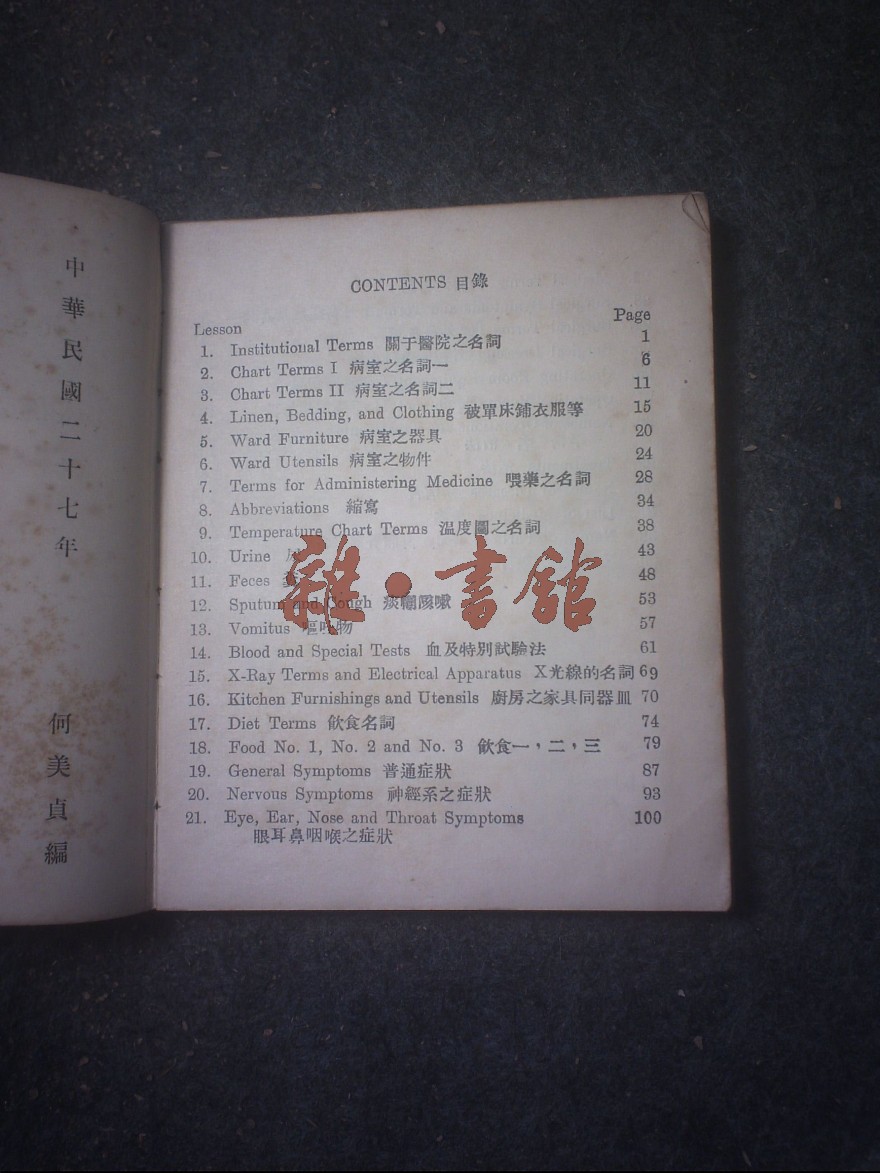 中華民國二十七年
何美貞編
CONTENTS 目錄
Lesson Page
1. Institutional Terms 關于醫院之名詞 1
2. Chart Terms I 病室之名詞一 6
3. Chart Terms II 病室之名詞二 11
4. Linen, Bedding, and Clothing 被單床鋪衣服等 15
5. Ward Furniture 病室之器具 20
6. Ward Utensils 病室之物件 24
7. Terms for Administering Medicine 喂藥之名詞 28
8. Abbreviations 縮寫 34
9. Temperature Chart Terms 温度圖之名詞 38
10. Urine 43
11. Feces 48
12. Sputum and Cough 53
13. Vomitus 嘔吐物 57
14. Blood and Special Tests 血及特別試驗法 61
15. X-Ray Terms and Electrical Apparatus X光線的名詞 69
16. Kitchen Furnishings and Utensils 廚房之家具同器皿 70
17. Diet Terms 飲食名詞 74
18. Food No. 1, No. 2 and No. 3 飲食一，二，三 79
19. General Symptoms 普通症狀 87
20. Nervous Symptoms 神經系之症狀 93
21. Eye, Ear, Nose and Throat Symptoms 100
眼耳鼻咽喉之症狀
雜·書館